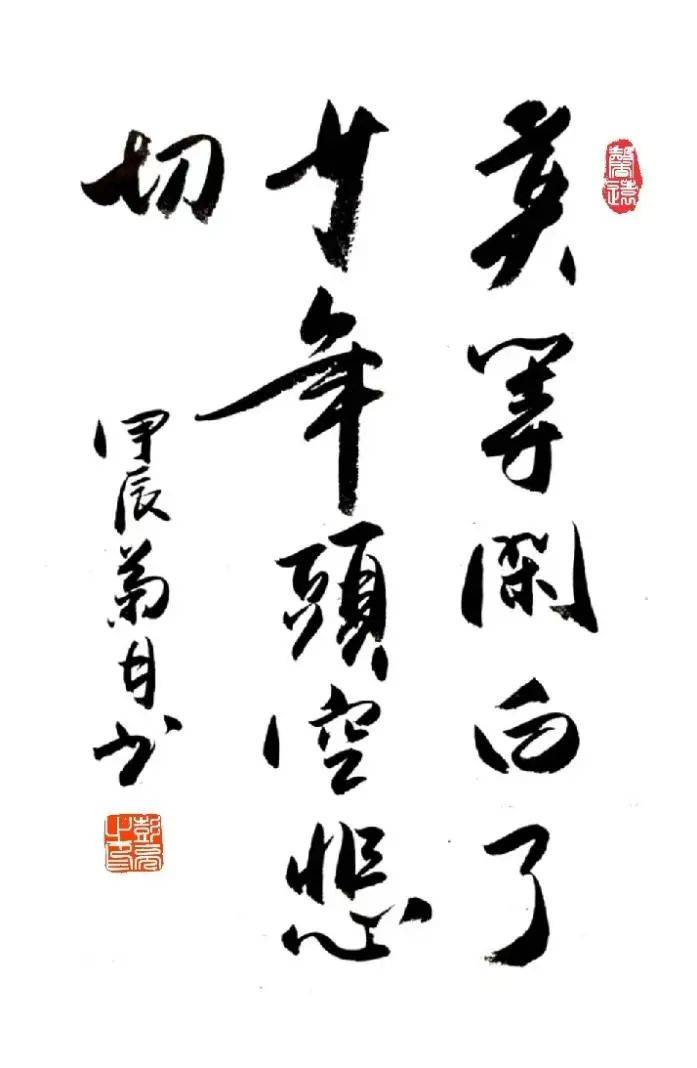 莫等閑白了
少年頭空悲
切
甲辰菊月书